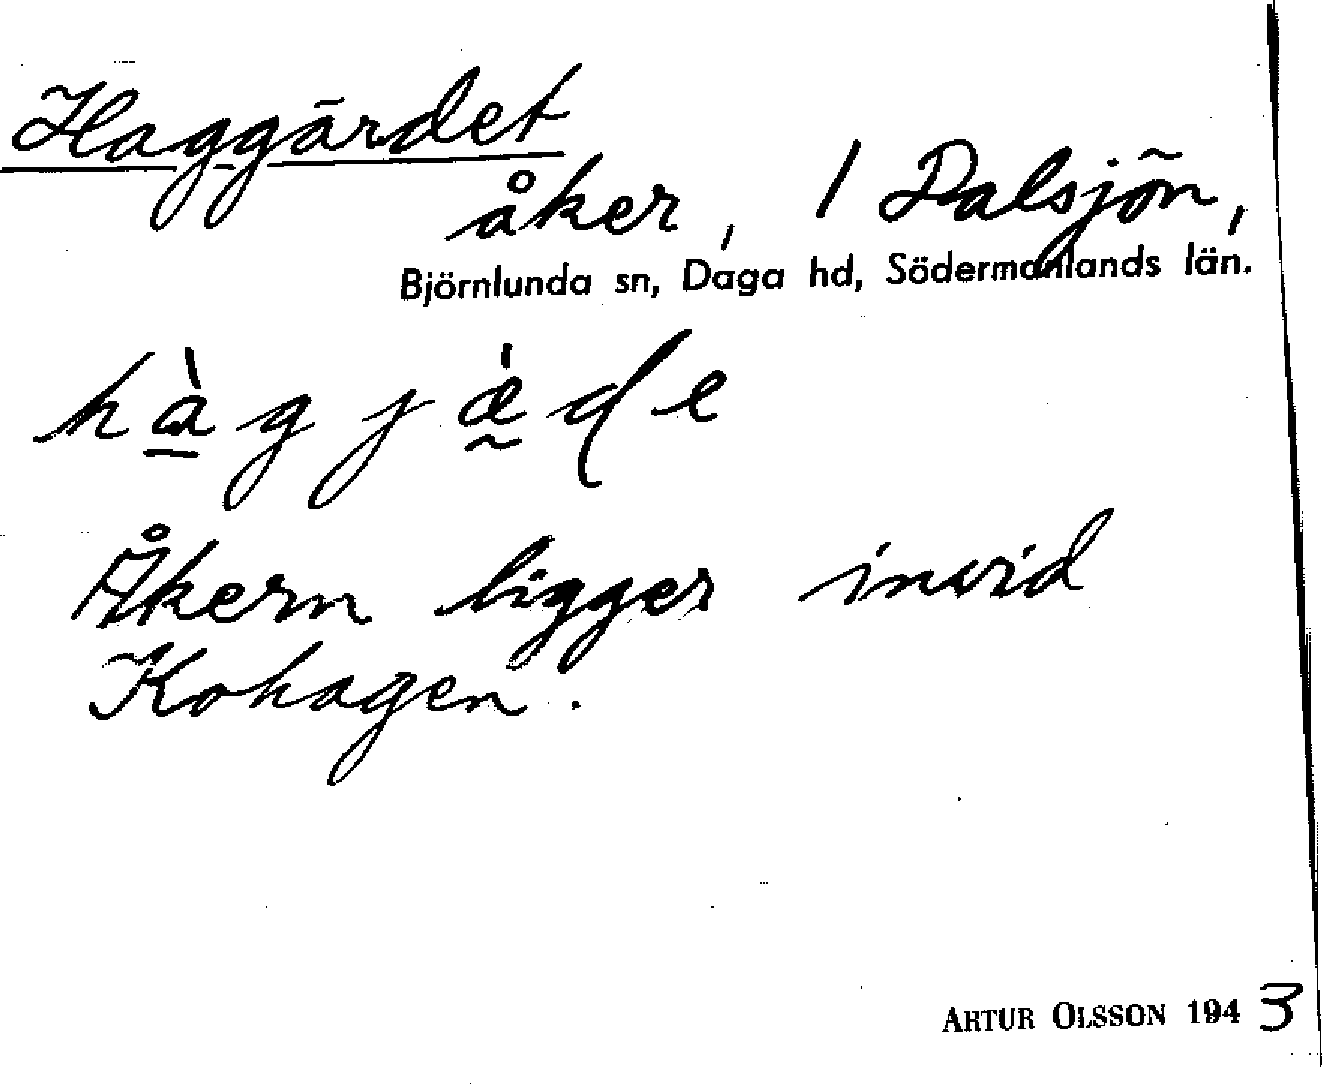 Haggärdet
åker, 1 Dalsjön,
Björnlunda sn, Daga hd, Södermanlands län.
hàgjæ̀de
Åkern ligger invid
Kohagen.
ARTUR OLSSON 1943